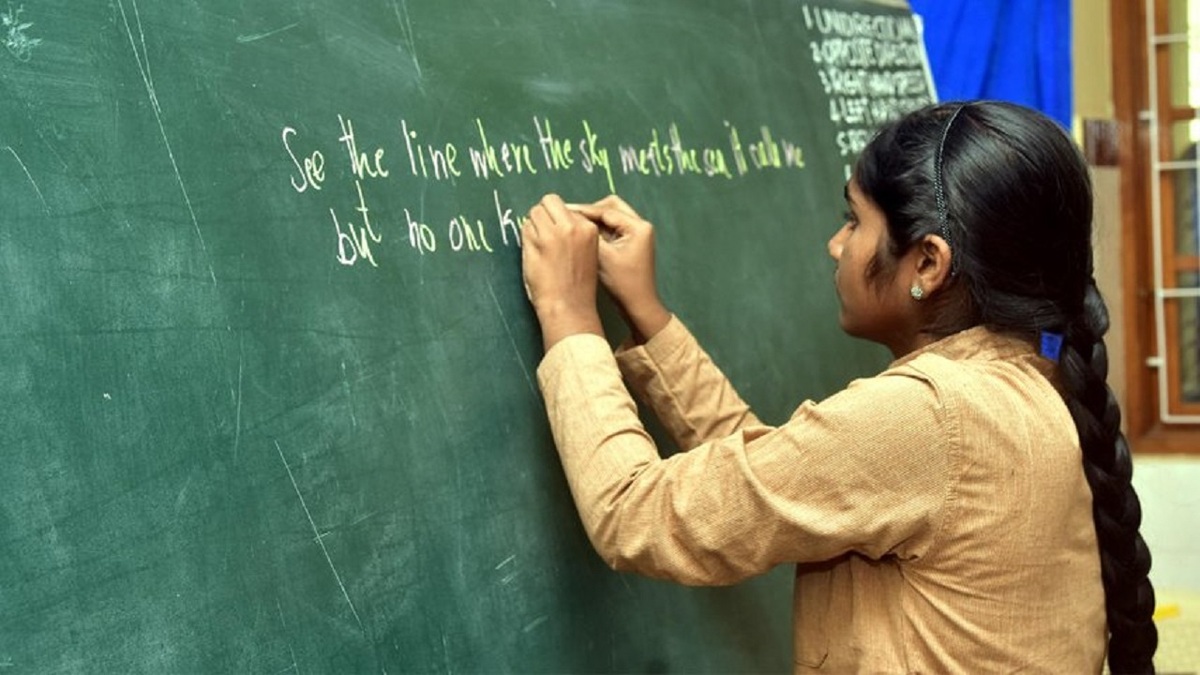 See the line where the sky meets the sea it calls me
but no one kn
1 UNIDIRECTION
2 OPPOSITE DIRECTION
3 RIGHT HAND
4 LEFT HAND